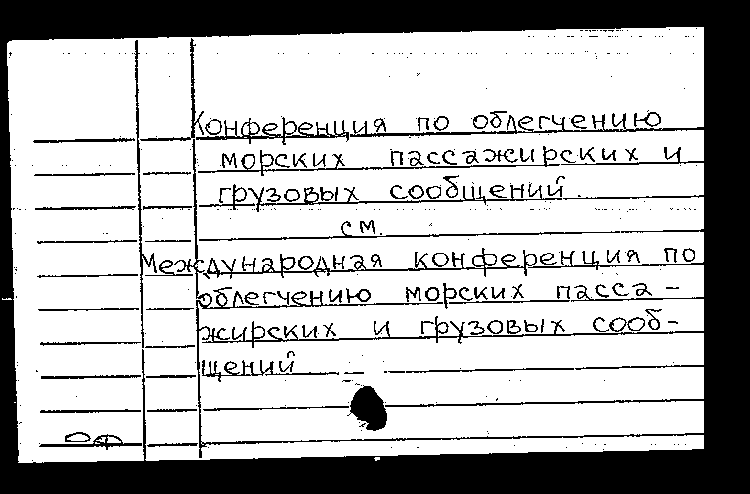 Конференция по облегчению
морских пассажирских и
грузовых сообщений.
см.
Международная конференция по
облегчению морских пасса-
жирских и грузовых сооб-
щений